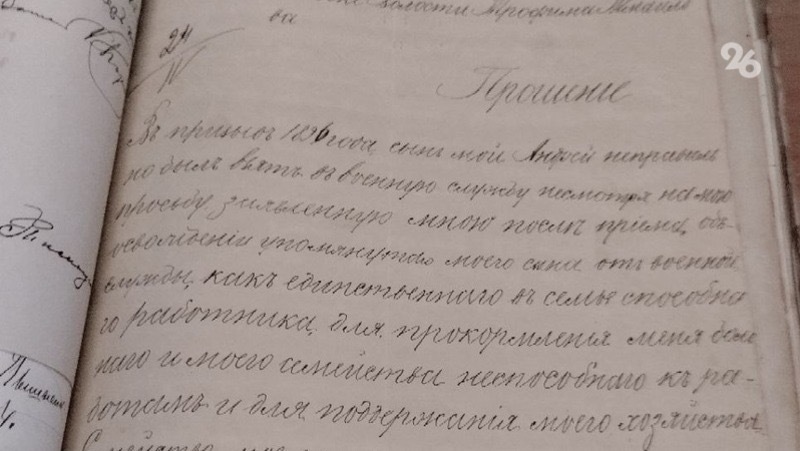 волости Трофима Михайло
ва
26
24
IV
Прошеніе
Въ призывъ 1896 года, сынъ мой Андрей неправиль
но былъ взятъ въ военную службу несмотря на мою
просьбу заявленную мною послѣ пріема, объ
освобожденіи упомянутаго моего сына отъ военной
службы, какъ единственнаго въ семьѣ способна
го работника, для прокормленія меня боль
наго и моего семейства неспособнаго къ ра-
ботамъ и для поддержанія моего хозяйства.
Семейство